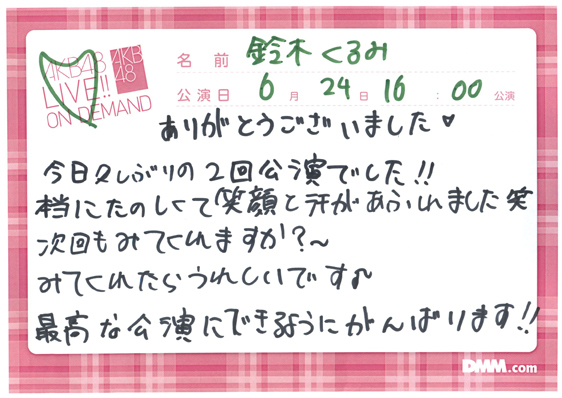 AKB48
LIVE!!
ON DEMAND
AKB
48
名前 鈴木くるみ
公演日 6月24日 16:00公演
ありがとうございました♥
今日久しぶりの2回公演でした!!
本当にたのしくて笑顔と汗があふれました笑
次回もみてくれますか?~
みてくれたらうれしいです♪
最高な公演にできるようにがんばります!!
DMM.com